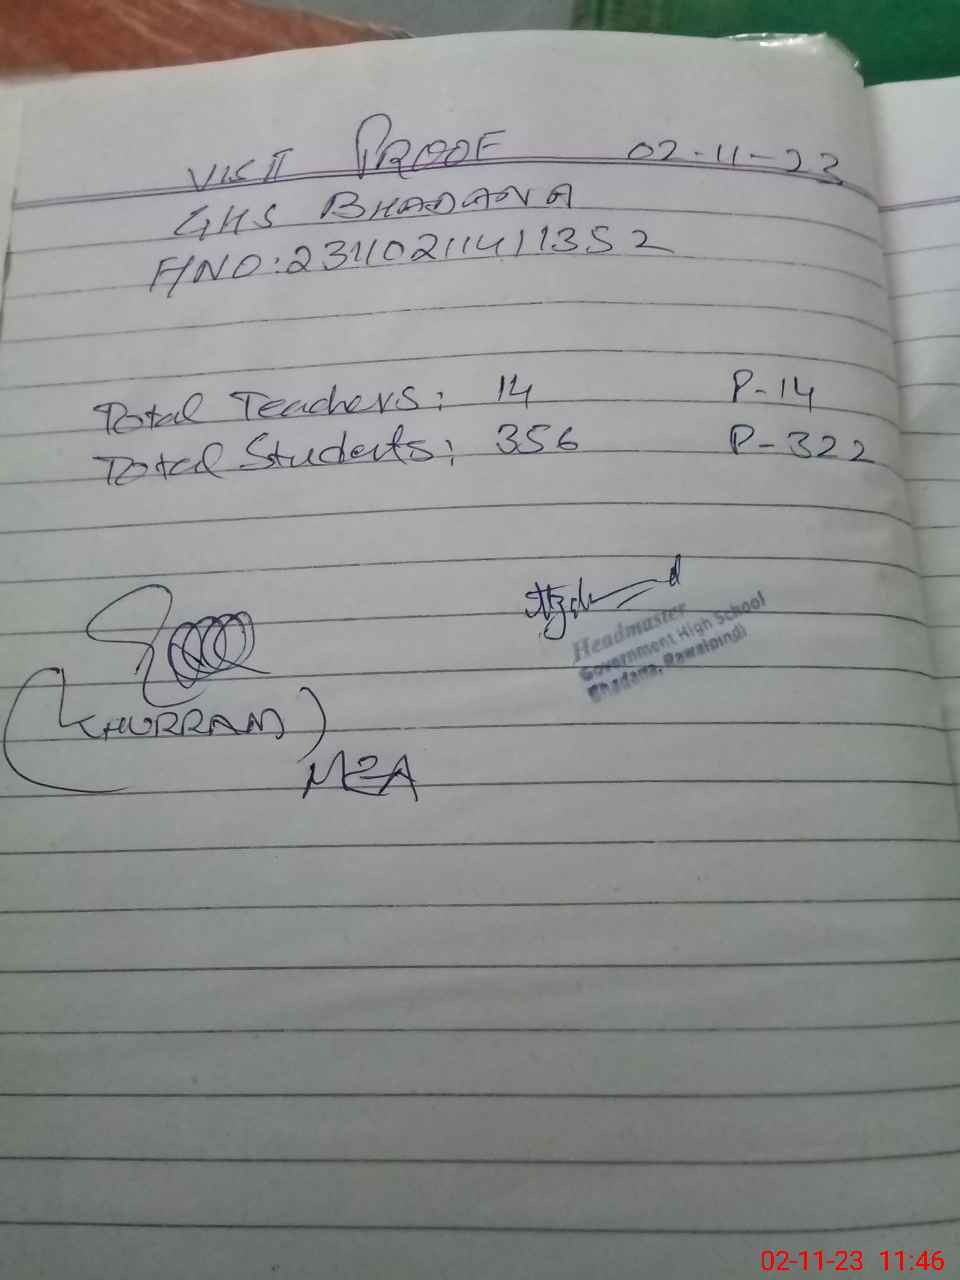 VISIT PROOF 02-11-23
GHS BHADANA
F/NO: 231102114111352
Total Teachers: 14 P-14
Total Students: 356 P-322
Headmaster
Government High School
Bhadana, Rawalpindi
(KHURRAM)
MEA
02-11-23 11:46